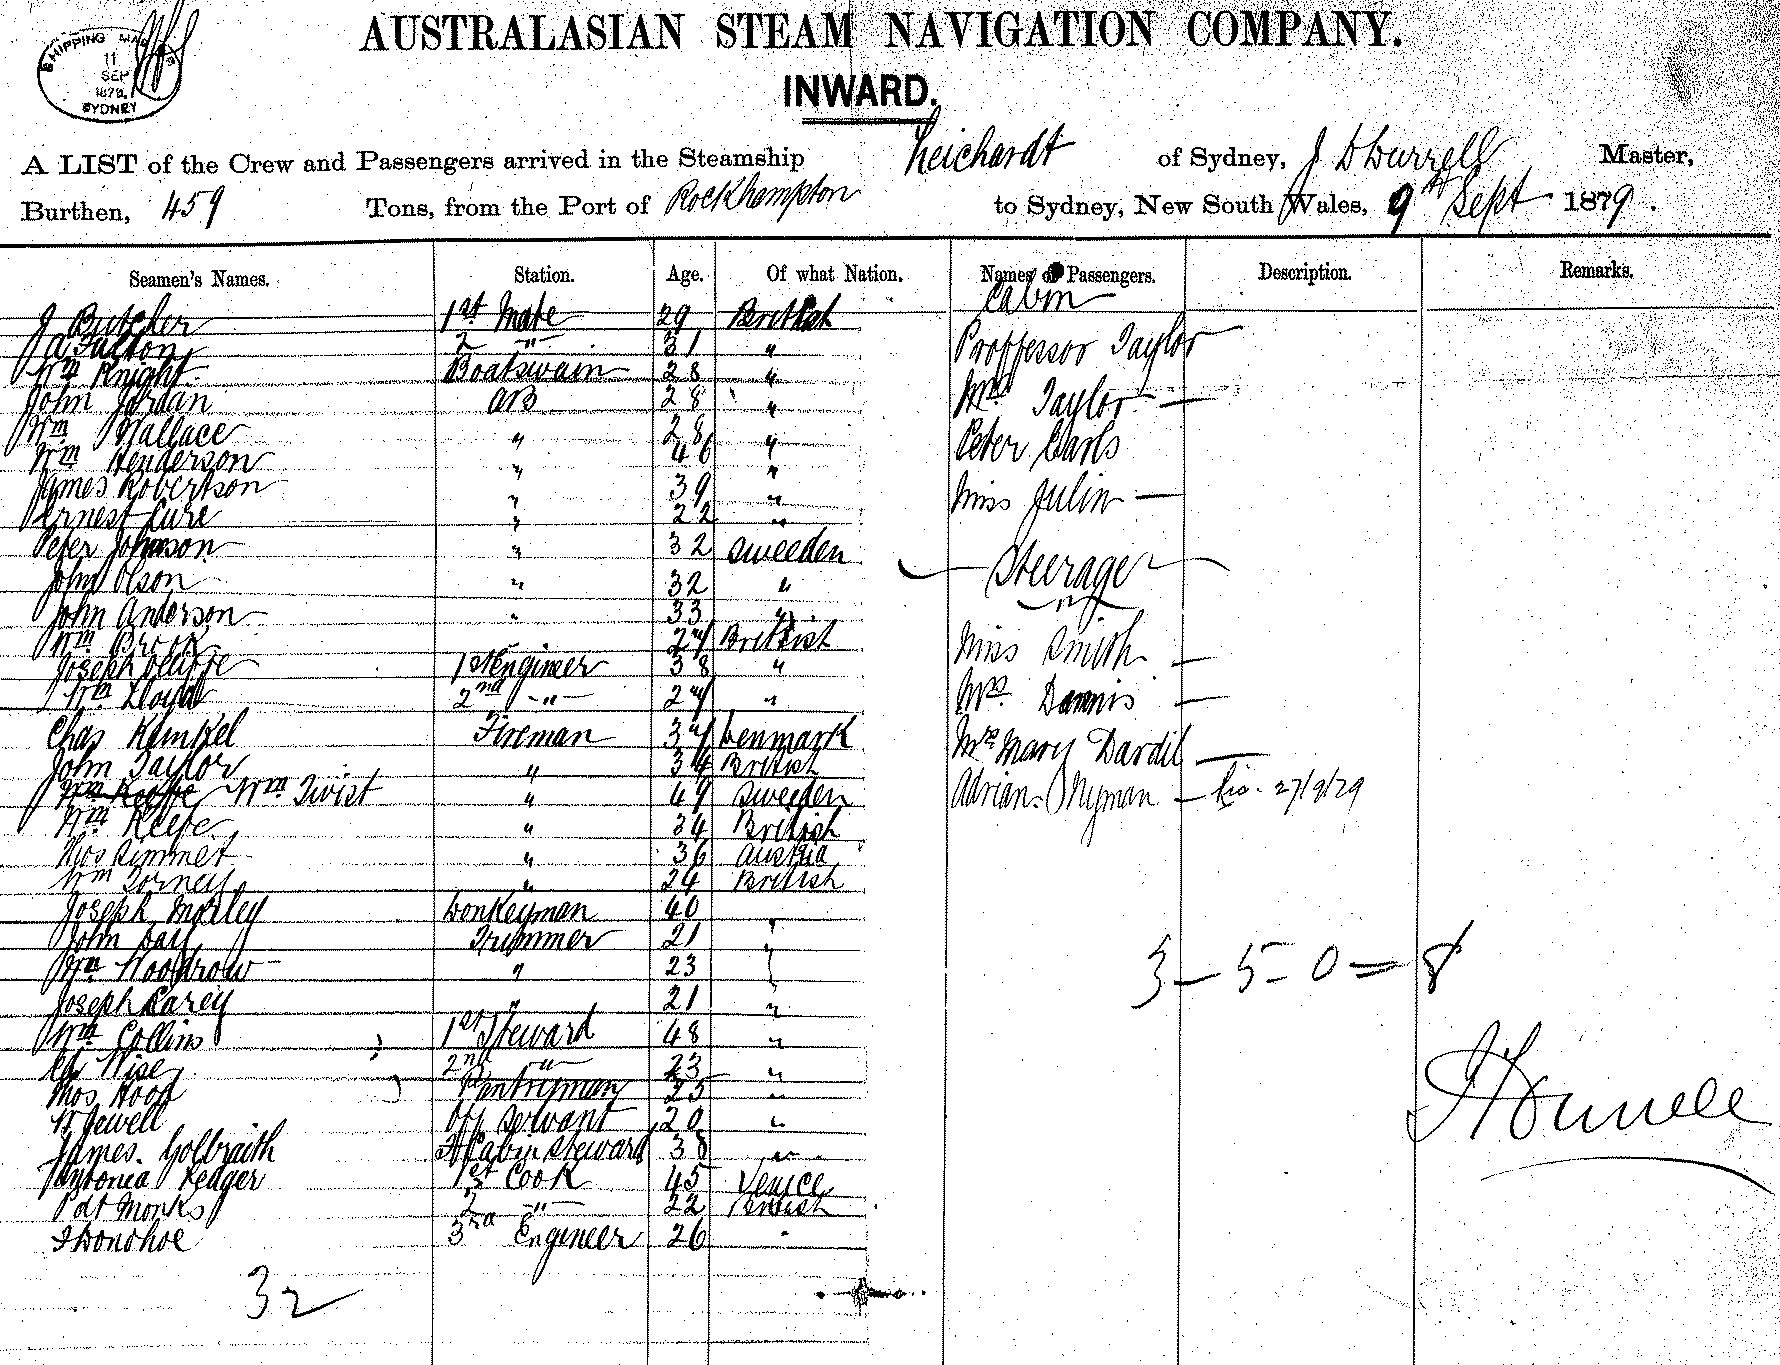 AUSTRALASIAN STEAM NAVIGATION COMPANY.
SHIPPING
11
SEP
1879
SYDNEY
INWARD.
A LIST of the Crew and Passengers arrived in the Steamship Leichardt of Sydney, J D Durrell Master,
Burthen, 459 Tons, from the Port of Rockhampton to Sydney, New South Wales, 9th Sept 1879.
Seamen's Names. Station. Age. Of what Nation. Names of Passengers. Description. Remarks.
Cabin
J Butcher 1st Mate 29 British
J A Fulton 2 " 31 " Proffessor Taylor
Wm Knight Boatswain 28 "
John Jordan AB 28 " Mrs Taylor
Wm Wallace " 28 " Peter Carls
Wm Henderson " 46 "
James Robertson " 39 " Miss Julin
Ernest Cure " 22 "
Peter Johnson " 32 Sweeden
Steerage
John Olson " 32 "
John Anderson " 33 "
Wm Brook 24 British Miss Smith
Joseph 1st Engineer 38 "
Wm Lloyd 2nd " 24 " Mrs. Dannis
Chas Kunkel Fireman 34 Denmark Mrs Mary Dardil
John Taylor " 34 British
Wm Keefe Wm Twist " 49 Sweeden Adrian Nyman 27/9/79
Wm Keefe " 34 British
Thos Simmet " 36 Austria
Wm Torney " 24 British
Joseph Morley Donkeyman 40 "
John Day Trimmer 21 "
Wm Woodrow " 23 "
3 – 5 – 0 = 8
Joseph Carey " 21 "
Wm Collins 1st Steward 48 "
Wise 2nd " 23 "
Thos Hoop Pantryman 25 "
W Jewell Off Servant 20 "
J Durrell
James Golbraith Cabin Steward 38 "
Antonia Leager 1st Cook 45 Venice
Pat Monks 2 " 22 British
J Donohoe 3rd Engineer 26 "
32